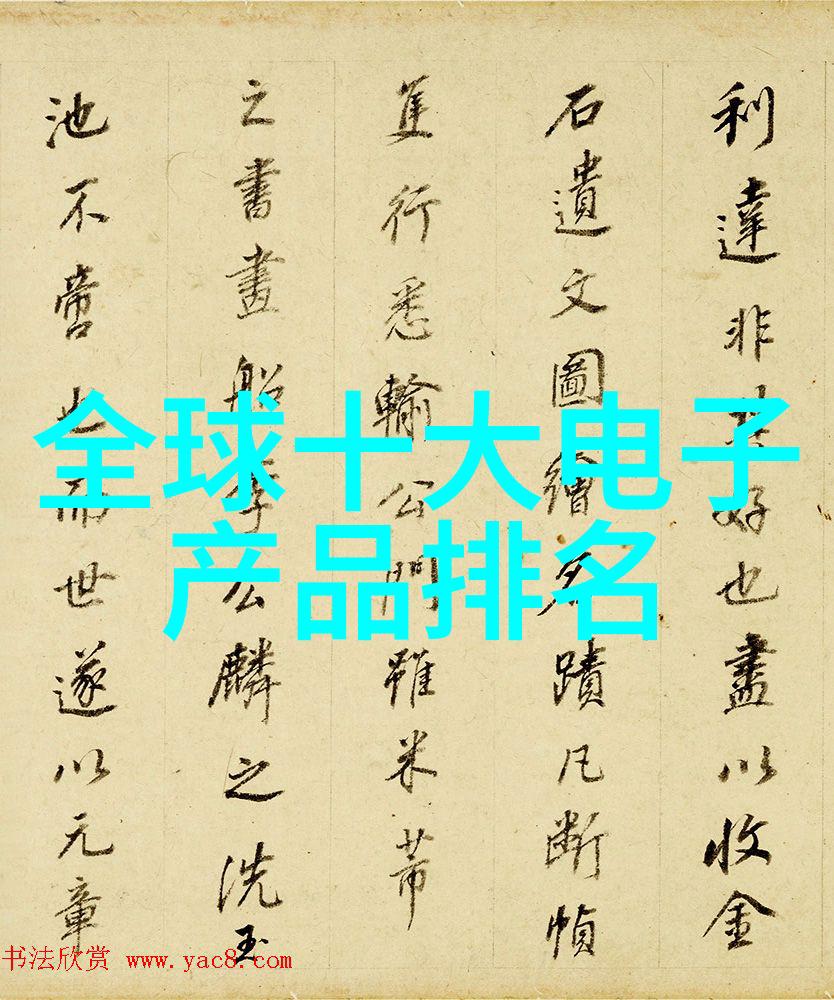 全球十大电子
产品排名
利達非其好也盡以收金
石遺文圖繪名蹟凡斷幀
隻行悉輸公門雖米芾
之書畫船李公麟之洗玉
池不啻也而世遂以元章
书法欣赏 www.yac8.com